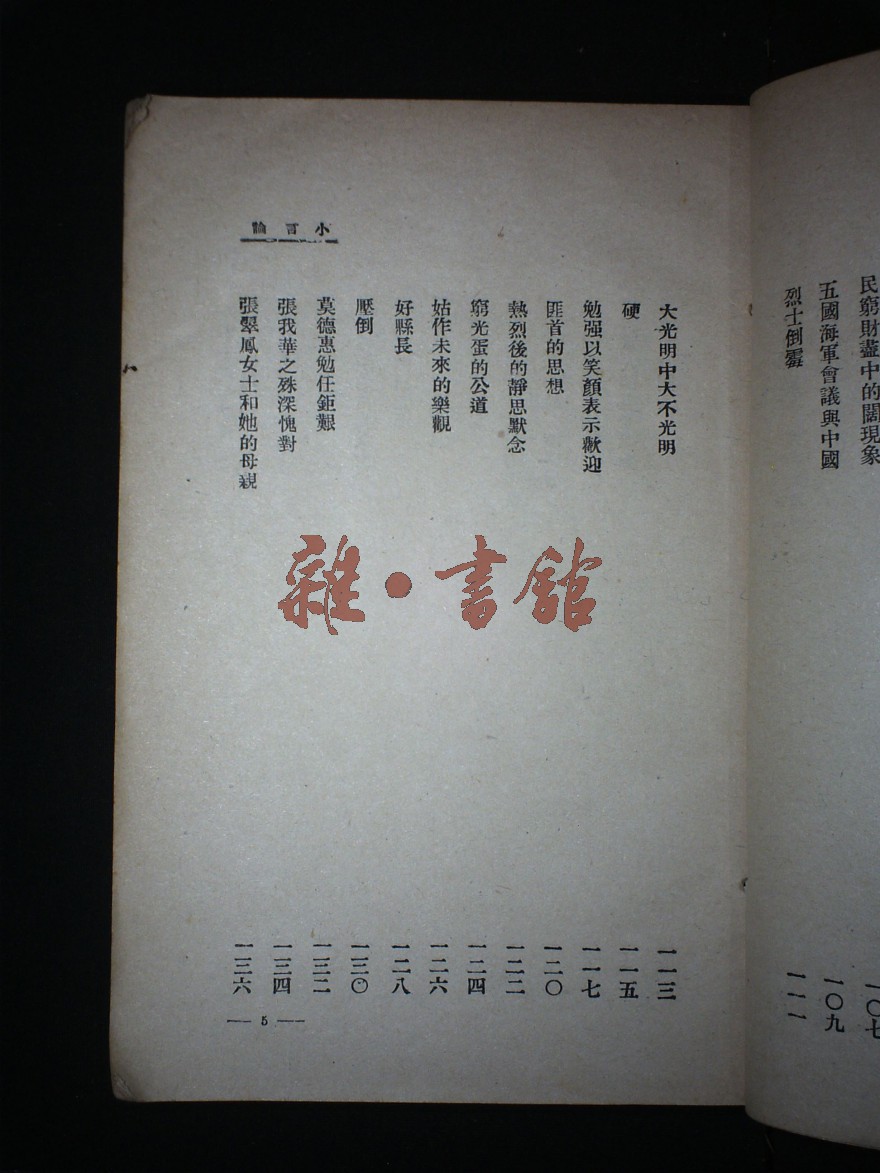 民窮財盡中的闊現象
一〇七
五國海軍會議與中國
一〇九
烈士倒霉
一一一
小言論
大光明中大不光明
一一三
硬
一一五
勉强以笑顏表示歡迎
一一七
匪首的思想
一二〇
熱烈後的靜思默念
一二二
窮光蛋的公道
一二四
姑作未來的樂觀
一二六
好縣長
一二八
壓倒
一三〇
莫德惠勉任鉅艱
一三二
張我華之殊深愧對
一三四
張翠鳳女士和她的母親
一三六
— 5 —
雜·書館